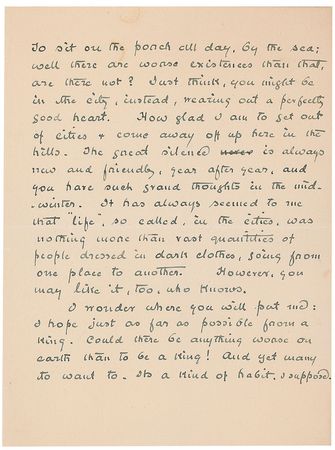 To sit on the porch all day, by the sea;
well there are worse existences than that,
are there not? Just think, you might be
in the city, instead, wearing out a perfectly
good heart. How glad I am to get out
of cities & come away off up here in the
hills. The great silence never is always
new and friendly, year after year, and
you have such grand thoughts in the mid-
-winter. It has always seemed to me
that "life", so called, in the cities, was
nothing more than vast quantities of
people dressed in dark clothes, going from
one place to another. However, you
may like it, too, who knows.
I wonder where you will put me:
I hope just as far as possible from a
King. Could there be anything worse on
earth than to be a King! And yet many
do want to. Its a kind of habit, I suppose.